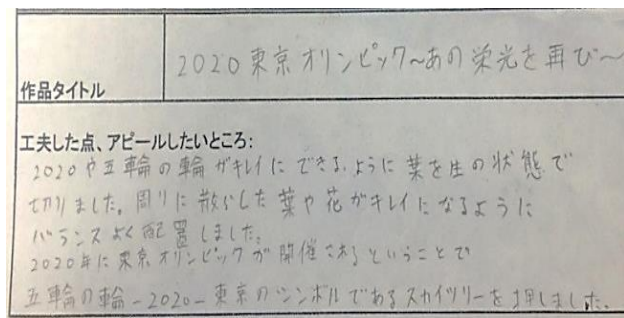 作品タイトル
2020東京オリンピック~あの栄光を再び~
工夫した点、アピールしたいところ:
2020や五輪の輪がキレイにできるように葉を生の状態で
切りました。周りに散らした葉や花がキレイになるように
バランスよく配置しました。
2020年に東京オリンピックが開催されるということで
五輪の輪-2020-東京のシンボルであるスカイツリーを押しました。